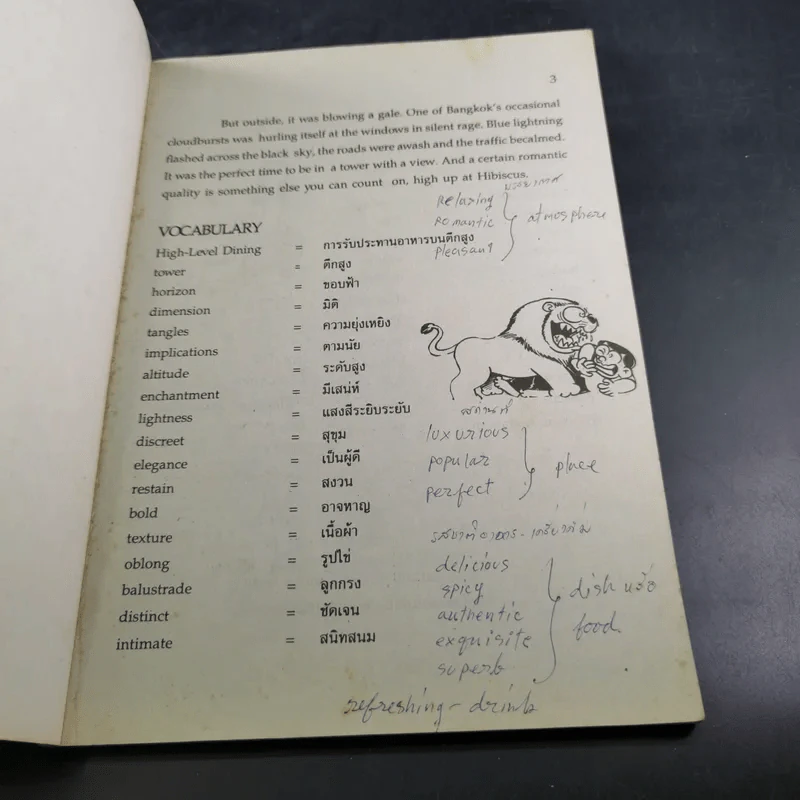 3
But outside, it was blowing a gale. One of Bangkok's occasional
cloudbursts was hurling itself at the windows in silent rage. Blue lightning
flashed across the black sky, the roads were awash and the traffic becalmed.
It was the perfect time to be in a tower with a view. And a certain romantic
quality is something else you can count on, high up at Hibiscus.
บรรยากาศ
Relaxing
Romantic
pleasant
atmosphere
VOCABULARY
High-Level Dining = การรับประทานอาหารบนตึกสูง
tower = ตึกสูง
horizon = ขอบฟ้า
dimension = มิติ
tangles = ความยุ่งเหยิง
implications = ตามนัย
altitude = ระดับสูง
enchantment = มีเสน่ห์
lightness = แสงสีระยิบระยับ
discreet = สุขุม
elegance = เป็นผู้ดี
restain = สงวน
bold = อาจหาญ
texture = เนื้อผ้า
oblong = รูปไข่
balustrade = ลูกกรง
distinct = ชัดเจน
intimate = สนิทสนม
สถานที่
luxurious
popular
perfect
place
รสชาติอาหาร - เครื่องดื่ม
delicious
spicy
authentic
exquisite
superb
dish หรือ
food
refreshing - drink